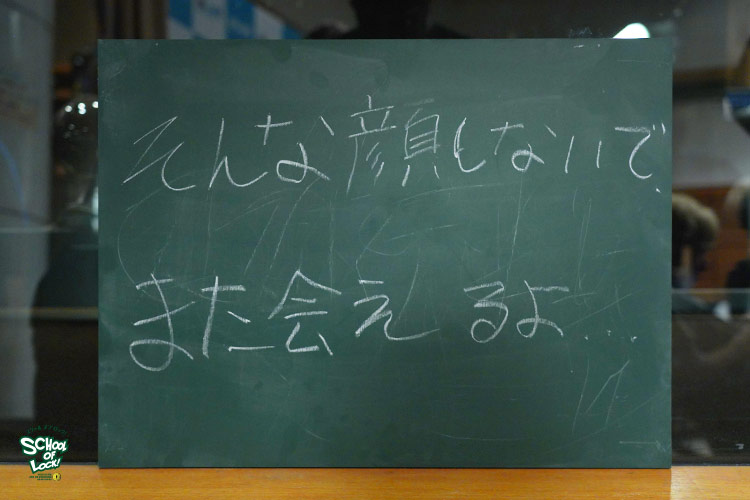 そんな顔しないで
また会えるよ...
SCHOOL
OF
LOCK!